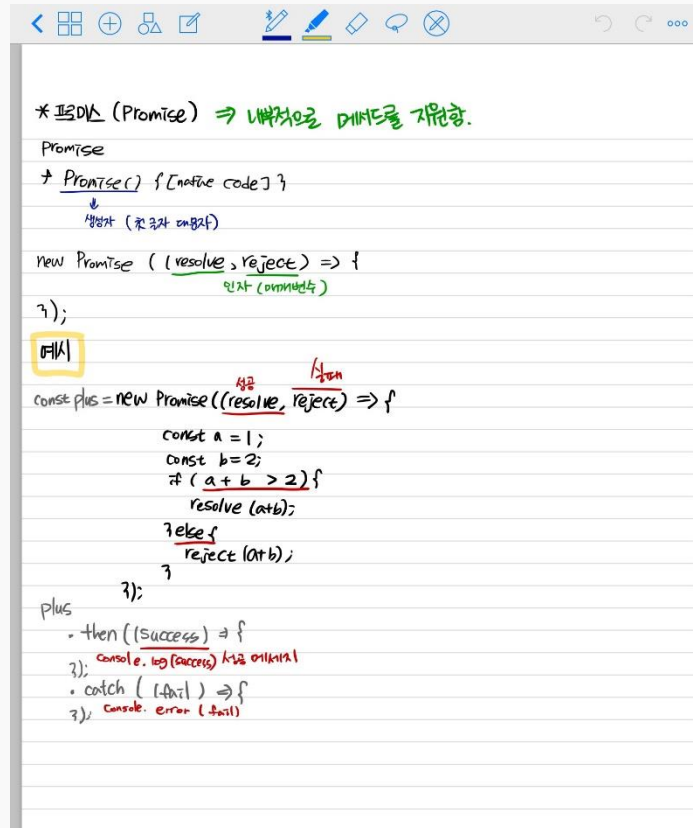 * 프로미스 (Promise) ⇒ 내부적으로 메서드를 지원함.
Promise
Promise() {[native code]}
생성자 (첫 글자 대문자)
new Promise ((resolve, reject) => {
인자 (매개변수)
});
예시
성공 실패
const plus = new Promise ((resolve, reject) => {
const a = 1;
const b = 2;
if (a + b > 2) {
resolve (a+b);
} else {
reject (a+b);
}
});
plus
.then ((success) => {
console.log(success) 성공 메세지
});
.catch ((fail) => {
console.error (fail)
});